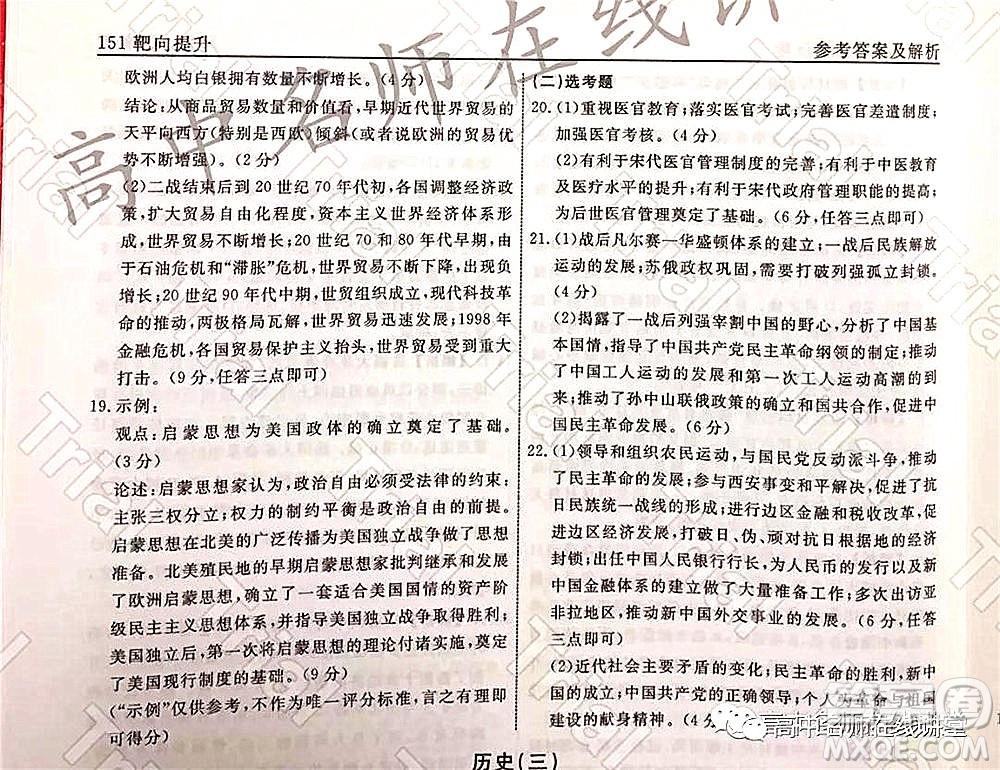 151靶向提升
参考答案及解析
欧洲人均白银拥有数量不断增长。(4分)
结论:从商品贸易数量和价值看,早期近代世界贸易的
天平向西方(特别是西欧)倾斜(或者说欧洲的贸易优
势不断增强)。(2分)
(2)二战结束后到20世纪70年代初,各国调整经济政
策,扩大贸易自由化程度,资本主义世界经济体系形
成,世界贸易不断增长;20世纪70年代到80年代早期,由
于石油危机和“滞胀”危机,世界贸易不断下降,出现负
增长;20世纪90年代中期,世贸组织成立,现代科技革
命的推动,两极格局瓦解,世界贸易迅速发展;1998年
金融危机,各国贸易保护主义抬头,世界贸易受到重大
打击。(9分,任答三点即可)
19.示例:
观点:启蒙思想为美国政体的确立奠定了基础。
(3分)
论述:启蒙思想家认为,政治自由必须受法律的约束;
主张三权分立、权力的制约平衡是政治自由的前提。
启蒙思想在北美的广泛传播为美国独立战争做了思想
准备。北美殖民地的早期启蒙思想家批判继承和发展
了欧洲启蒙思想,建立了一套适合美国国情的资产阶
级民主主义思想体系,并指导美国独立战争取得胜利。
美国独立后,第一次将启蒙思想的理论付诸实施,奠定
了美国现行制度的基础。(9分)
(“示例”仅供参考,不作为唯一评分标准,言之有理即
可得分)
(二)选考题
20.(1)重视医官教育;落实医官考试;完善医官差遣制度;
加强医官考核。(4分)
(2)有利于宋代医官管理制度的完善;有利于中医教育
及医疗水平的提升;有利于宋代政府管理职能的提高;
为后世医官管理奠定了基础。(6分,任答三点即可)
21.(1)战后凡尔赛—华盛顿体系的建立;一战后民族解放
运动的发展;苏俄政权巩固,需要打破列强孤立封锁。
(4分)
(2)揭露了一战后列强宰割中国的野心,分析了中国基
本国情,指导了中国共产党民主革命纲领的制定;推动
了中国工人运动的发展和第一次工人运动高潮的到
来;推动了孙中山联俄政策的确立和国共合作,促进中
国民主革命发展。(6分)
22.(1)领导和组织农民运动,与国民党反动派斗争,推动了
民主革命的发展;参与西安事变和平解决,促进了抗
日民族统一战线的形成;进行边区金融和税收改革,促
进边区经济发展,打破日、伪、顽对抗日根据地的经济
封锁;出任中国人民银行行长,为人民币的发行与
中国金融体系的建立做了大量准备工作;多次出访亚
非拉地区,推动新中国外交事业的发展。(6分,任答
三点即可)
(2)近代社会主要矛盾的变化;民主革命的胜利,新中
国的成立;中国共产党的正确领导;个人为革命与祖国
建设的献身精神。(4分
历史(三)
高中名师在线讲堂
高中名师在线讲堂
Trial
MXQE.COM